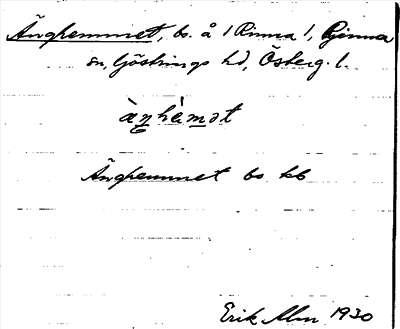 Änghemmet, bs. å 1 Rinna 1, Rinna
sn, Göstrings hd, Österg. l.
àŋhèmət
Änghemmet bs kb
Erik Alm 1930